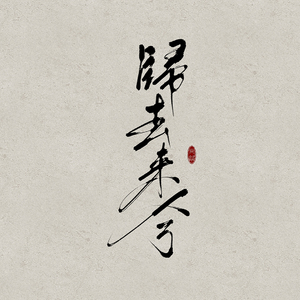 歸去来兮